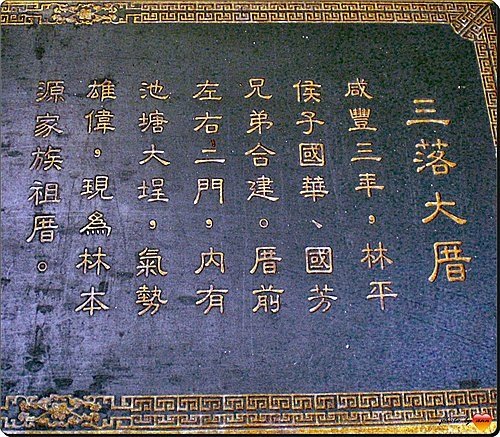 三落大厝
咸豐三年，林平
侯子國華、國芳
兄弟合建。厝前
左右二門，內有
池塘大埕，氣勢
雄偉，現為林本
源家族祖厝。